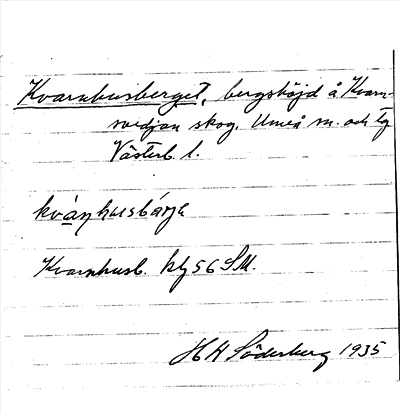 Kvarnhusberget, bergshöjd å Kvarn-
svedjan skog, Umeå sn. och tg
Västerb. l.
kvàṇhusbárje
Kvarnhusb. kbl 56 SM.
HH Söderberg 1935